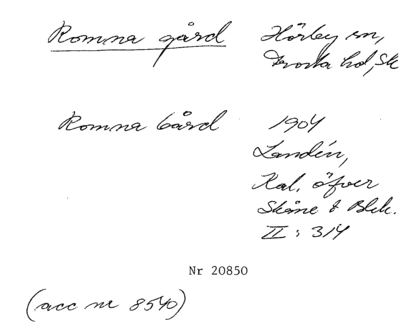 Romna gård Hörby sn,
Frosta hd, Sk
Romna bård 1904
Landén,
Kal. öfver
Skåne & Blek.
II: 314
Nr 20850
(acc nr 8540)